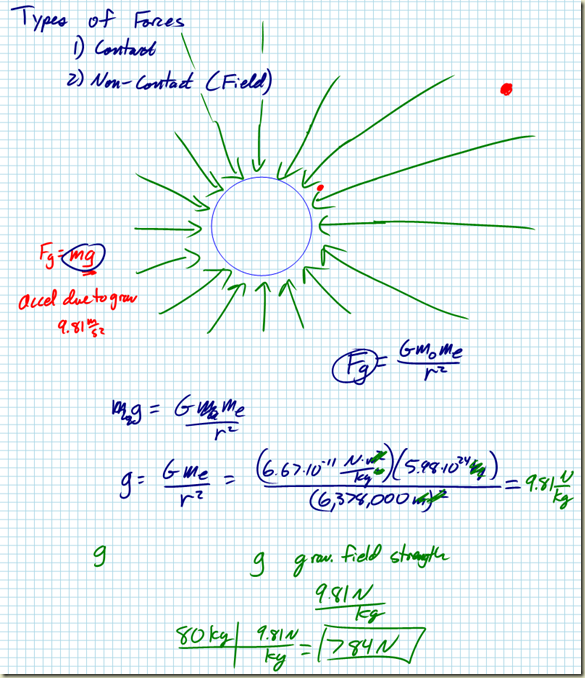 Types of Forces
1) Contact
2) Non-Contact (Field)
Fg = mg
accel due to grav
9.81 m/s²
Fg = Gm₀mₑ/r²
m₀g = Gm₀mₑ/r²
g = Gmₑ/r² = (6.67·10⁻¹¹ N·m²/kg²)(5.98·10²⁴ kg)/(6,378,000 m)² = 9.81 N/kg
g
g grav. field strength
9.81 N/kg
80 kg | 9.81 N/kg = 784 N